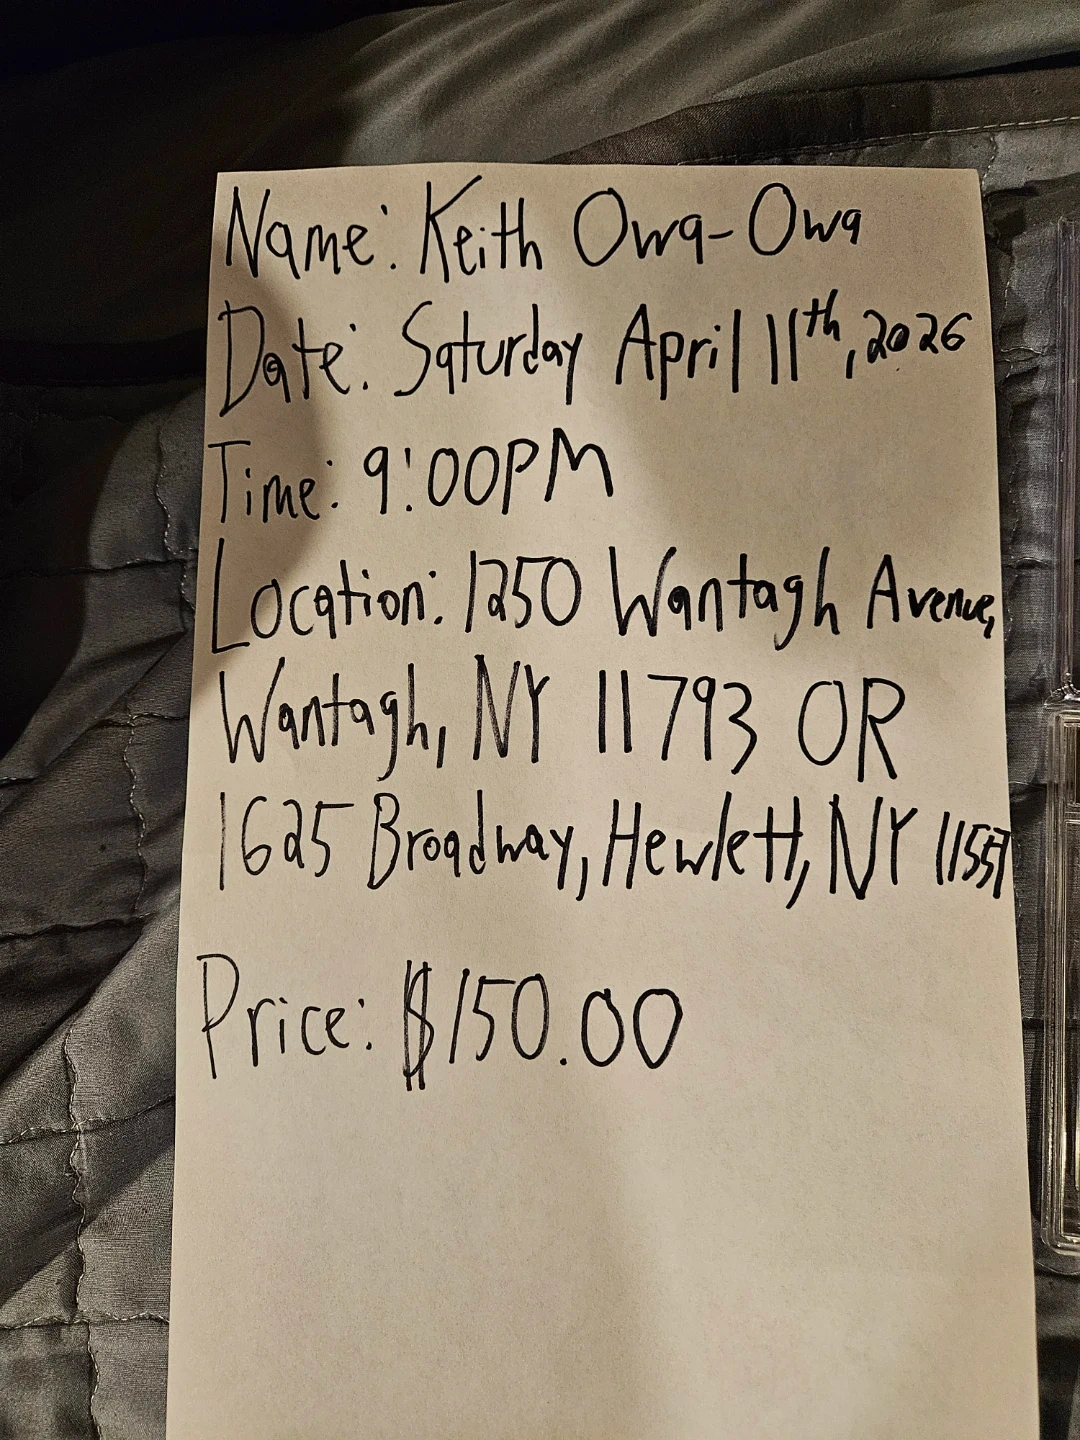 Name: Keith Owa-Owa
Date: Saturday April 11th, 2026
Time: 9:00PM
Location: 1250 Wantagh Avenue,
Wantagh, NY 11793 OR
1625 Broadway, Hewlett, NY 11557
Price: $150.00